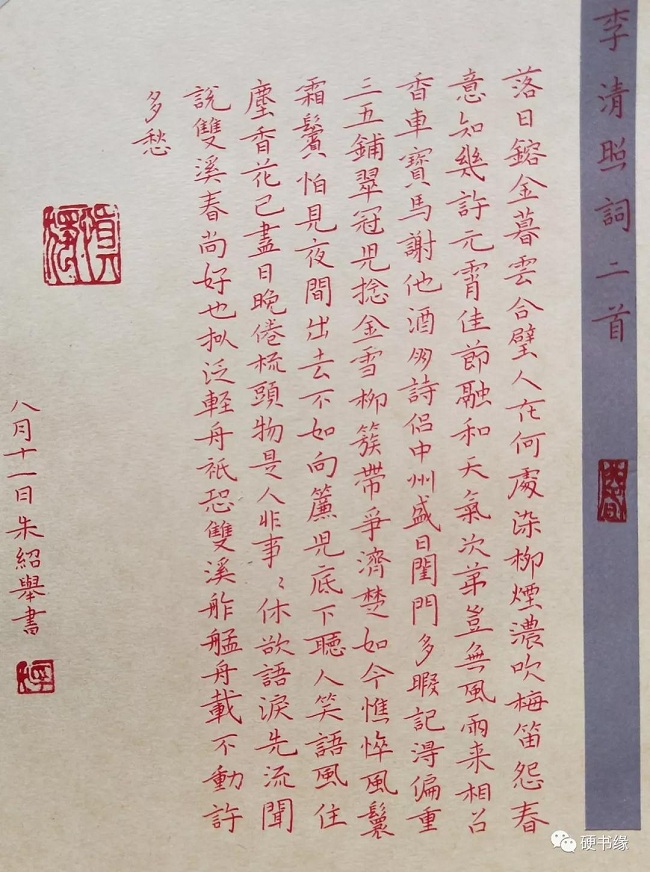 李清照詞二首
落日鎔金暮雲合璧人在何處染柳煙濃吹梅笛怨春
意知幾許元宵佳節融和天氣次第豈無風雨来相召
香車寶馬謝他酒朋詩侣中州盛日閨門多暇記得偏重
三五鋪翠冠兒捻金雪柳簇帶爭濟楚如今憔悴風鬟
霜鬢怕見夜間出去不如向簾兒底下聽人笑語風住
塵香花已盡日晚倦梳頭物是人非事〻休欲語淚先流聞
說雙溪春尚好也拟泛輕舟衹恐雙溪舴艋舟載不動許
多愁
八月十一日朱紹舉書
硬书缘